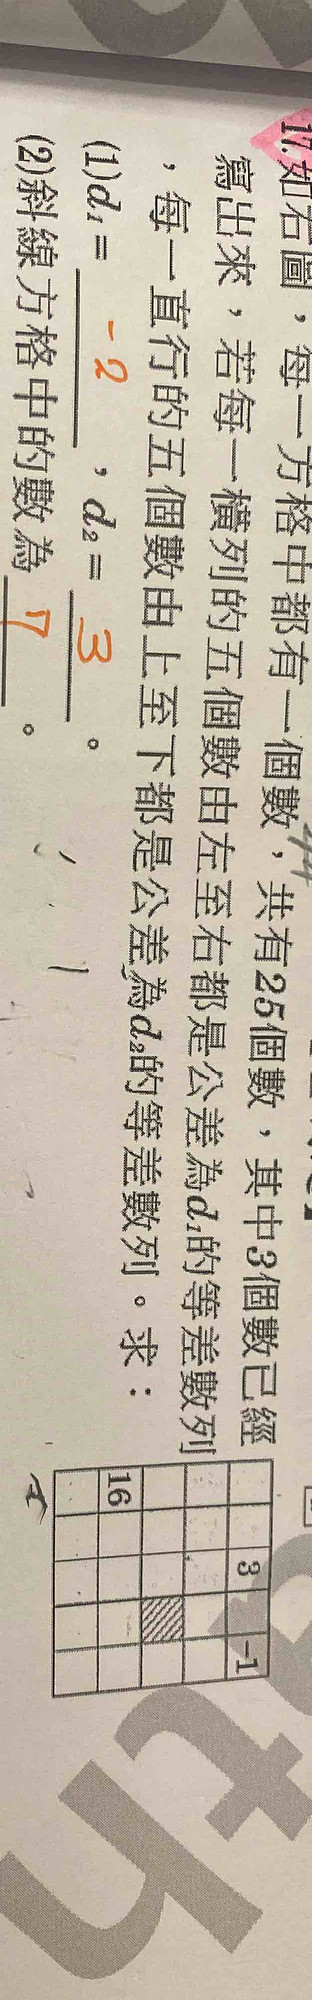 17. 如右圖，每一方格中都有一個數，共有25個數，其中3個數已經
寫出來，若每一橫列的五個數由左至右都是公差為d₁的等差數列
，每一直行的五個數由上至下都是公差為d₂的等差數列。求：
(1)d₁= -2 ，d₂= 3 。
(2)斜線方格中的數為 7 。
3 -1
16